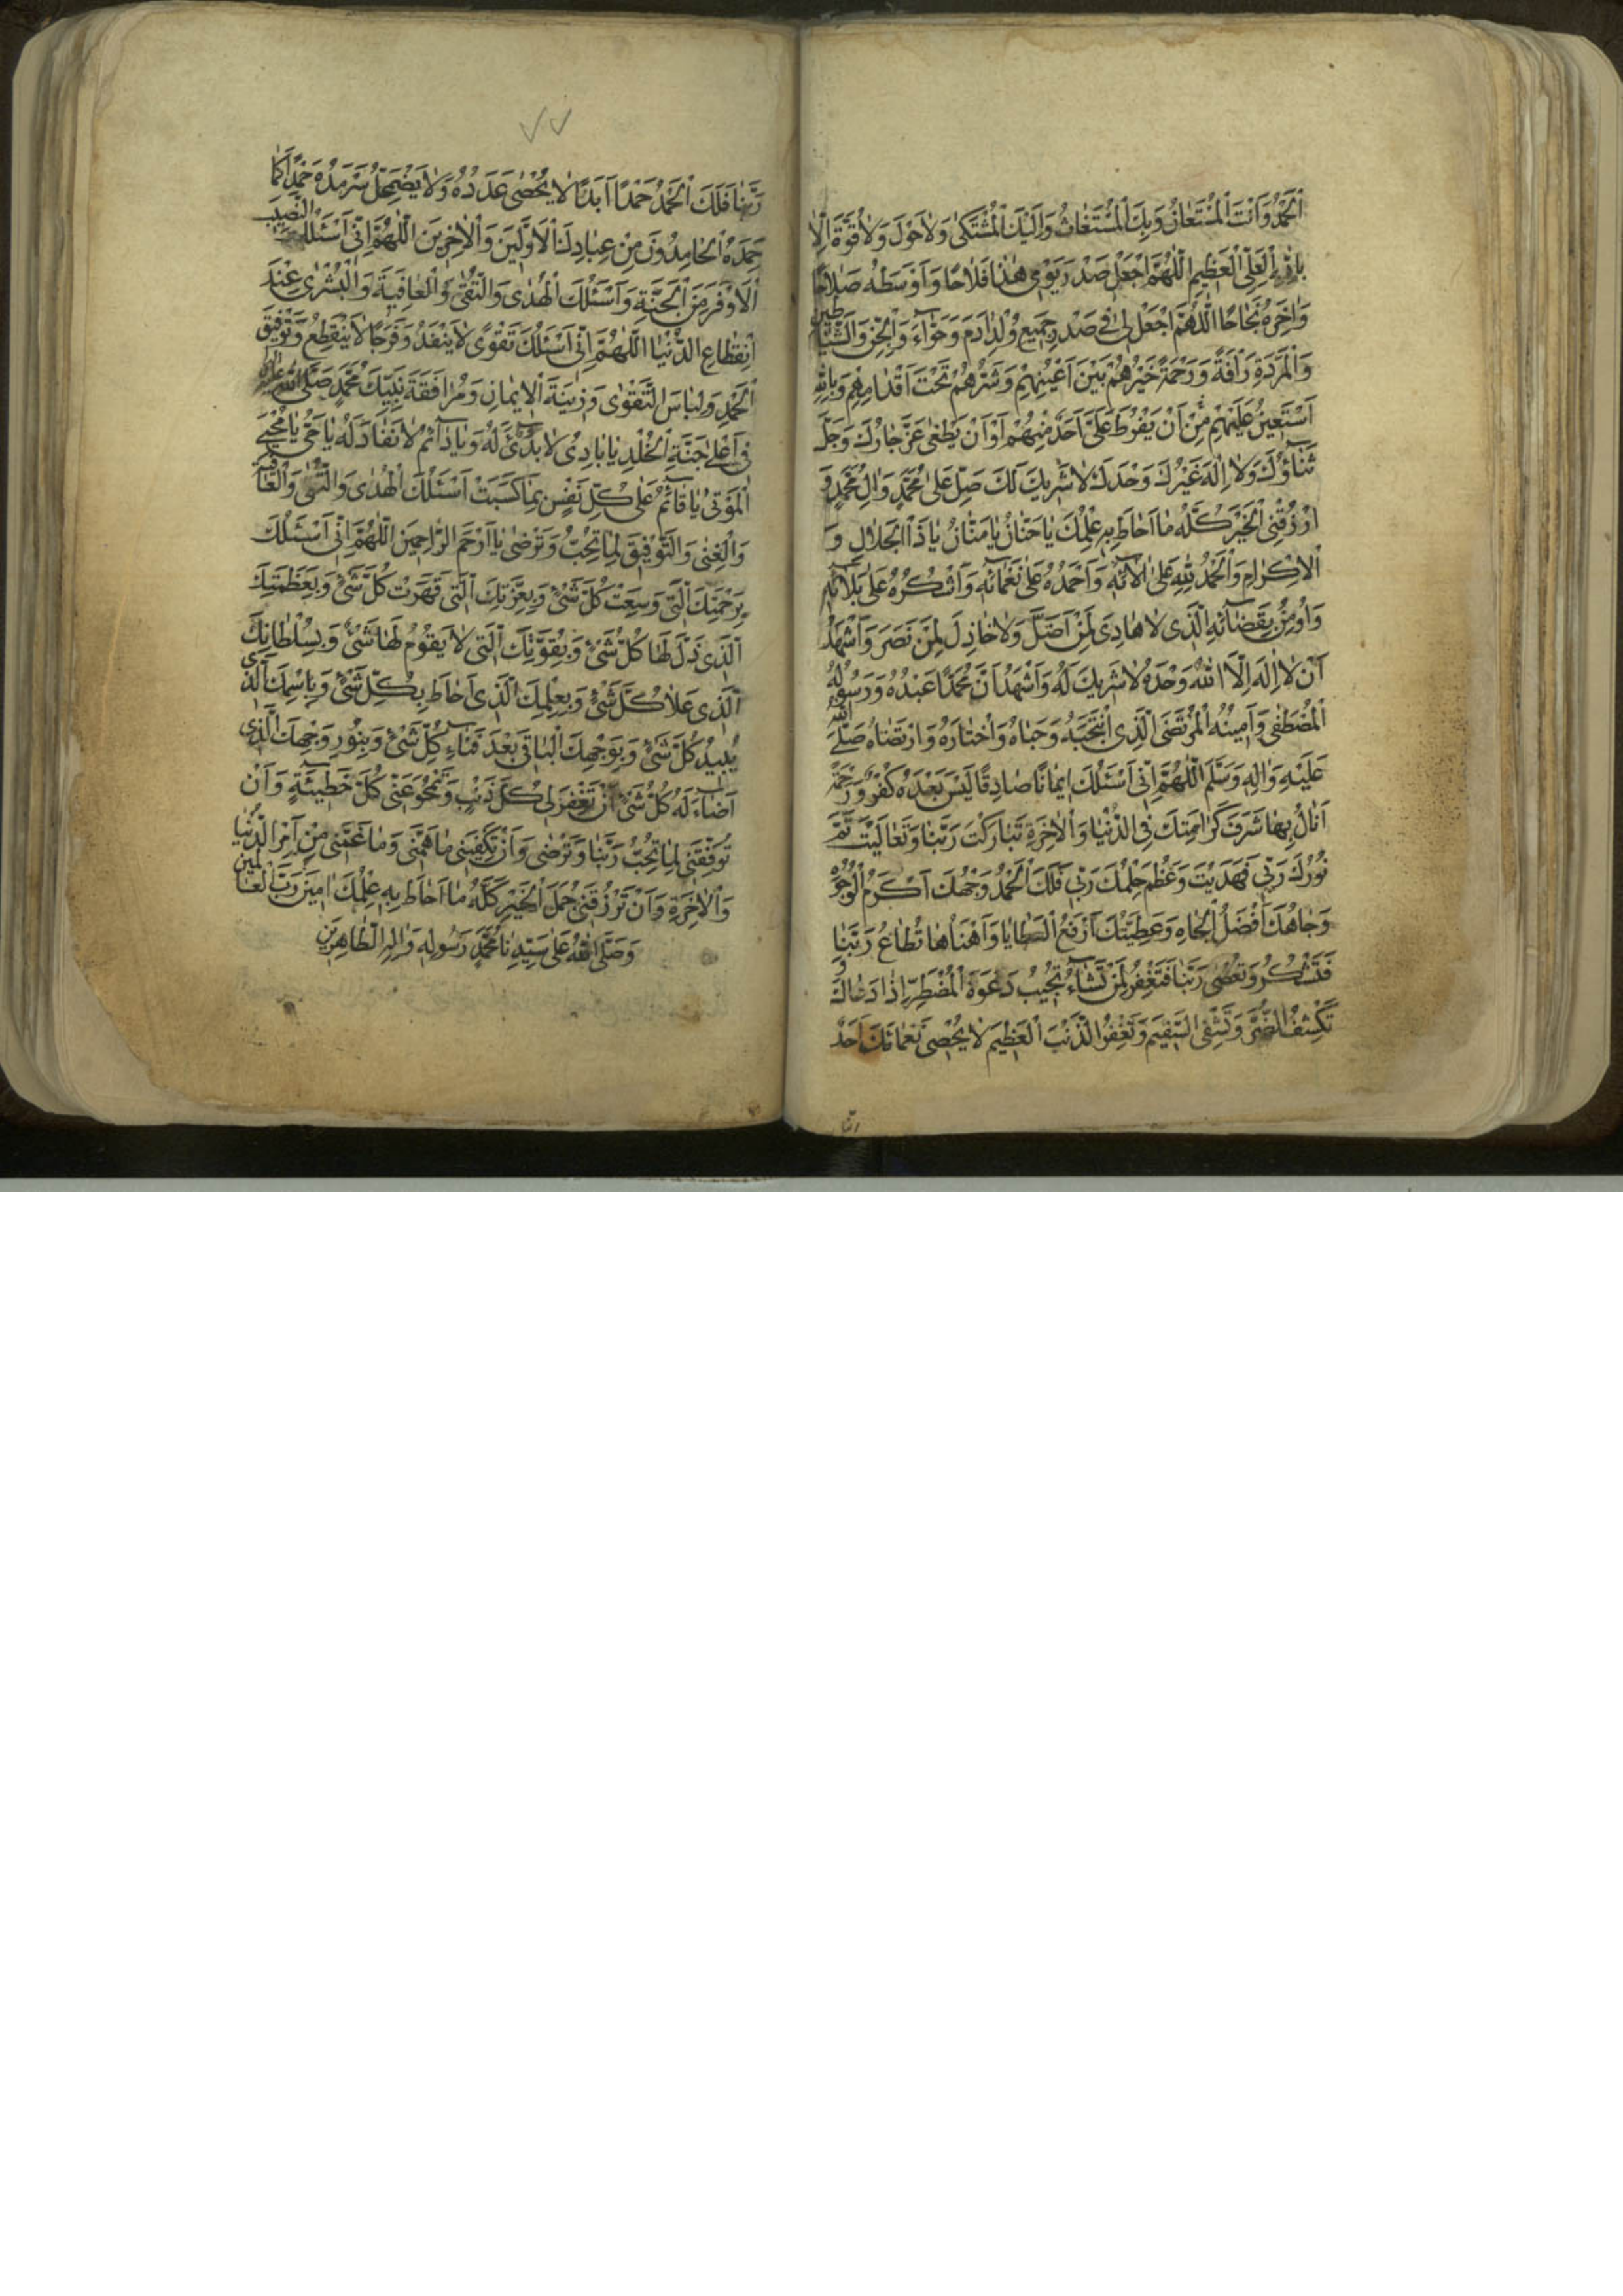 اَلْحَمْدُ وَاَنْتَ الْمُسْتَعَانُ وَبِكَ الْمُسْتَغَاثُ وَاِلَيْكَ الْمُشْتَكٰى وَلَاحَوْلَ وَلَاقُوَّةَ اِلَّا
بِاللّٰهِ الْعَلِىِّ الْعَظِيمِ اَللّٰهُمَّ اجْعَلْ صَدْرَ يَوْمِى هٰذَا فَلَاحًا وَاَوْسَطَهُ صَلَاحًا
وَاٰخِرَهُ نَجَاحًا اَللّٰهُمَّ اجْعَلْ لِى فِى صَدْرِ جَمِيعِ وُلْدِ اٰدَمَ وَحَوَّآءَ وَالْجِنِّ وَالشَّيَاطِينِ
وَالْمَرَدَةِ رَاْفَةً وَرَحْمَةً خَيْرُهُمْ بَيْنَ اَعْيُنِهِمْ وَشَرُّهُمْ تَحْتَ اَقْدَامِهِمْ وَبِاللّٰهِ
اَسْتَعِينُ عَلَيْهِمْ مِنْ اَنْ يَفْرُطَ عَلَىَّ اَحَدٌ مِنْهُمْ اَوْ اَنْ يَطْغٰى عَزَّ جَارُكَ وَجَلَّ
ثَنَاؤُكَ وَلَا اِلٰهَ غَيْرُكَ وَحْدَكَ لَا شَرِيكَ لَكَ صَلِّ عَلٰى مُحَمَّدٍ وَاٰلِ مُحَمَّدٍ وَ
ارْزُقْنِى الْخَيْرَ كُلَّهُ مَا اَحَاطَ بِهِ عِلْمُكَ يَا حَنَّانُ يَا مَنَّانُ يَا ذَا الْجَلَالِ وَ
الْاِكْرَامِ وَالْحَمْدُ لِلّٰهِ عَلٰى اٰلَآئِهِ وَاَحْمَدُهُ عَلٰى نَعْمَآئِهِ وَاَشْكُرُهُ عَلٰى بَلَآئِهِ
وَاُومِنُ بِقَضَآئِهِ الَّذِى لَا هَادِىَ لِمَنْ اَضَلَّ وَلَا خَاذِلَ لِمَنْ نَصَرَ وَاَشْهَدُ
اَنْ لَا اِلٰهَ اِلَّا اللّٰهُ وَحْدَهُ لَا شَرِيكَ لَهُ وَاَشْهَدُ اَنَّ مُحَمَّدًا عَبْدُهُ وَرَسُولُهُ
الْمُصْطَفٰى وَاَمِينُهُ الْمُرْتَضَى الَّذِى انْتَجَبَهُ وَحَبَاهُ وَاخْتَارَهُ وَارْتَضَاهُ صَلَّى اللّٰهُ
عَلَيْهِ وَاٰلِهِ وَسَلَّمَ اَللّٰهُمَّ اِنِّى اَسْئَلُكَ اِيمَانًا صَادِقًا لَيْسَ بَعْدَهُ كُفْرٌ وَرَحْمَةً
اَنَالُ بِهَا شَرَفَ كَرَامَتِكَ فِى الدُّنْيَا وَالْاٰخِرَةِ تَبَارَكْتَ رَبَّنَا وَتَعَالَيْتَ تَمَّ
نُورُكَ رَبِّى فَهَدَيْتَ وَعَظُمَ حِلْمُكَ رَبِّى فَلَكَ الْحَمْدُ وَجْهُكَ اَكْرَمُ الْوُجُوهِ
وَجَاهُكَ اَفْضَلُ الْجَاهِ وَعَطِيَّتُكَ اَرْفَعُ الْعَطَايَا وَاَهْنَاُهَا تُطَاعُ رَبَّنَا
فَتَشْكُرُ وَتُعْصٰى رَبَّنَا فَتَغْفِرُ لِمَنْ تَشَآءُ تُجِيبُ دَعْوَةَ الْمُضْطَرِّ اِذَا دَعَاكَ وَ
تَكْشِفُ الضُّرَّ وَتَشْفِى السَّقِيمَ وَتَغْفِرُ الذَّنْبَ الْعَظِيمَ لَا يُحْصِى نَعْمَائَكَ اَحَدٌ
رَبَّنَا فَلَكَ الْحَمْدُ حَمْدًا اَبَدًا لَا يُحْصٰى عَدَدُهُ وَلَا يَضْمَحِلُّ سَرْمَدُهُ حَمْدًا كَمَا
حَمِدَهُ الْحَامِدُونَ مِنْ عِبَادِكَ الْاَوَّلِينَ وَالْاٰخِرِينَ اَللّٰهُمَّ اِنِّى اَسْئَلُكَ النَّصِيبَ
الْاَوْفَرَ مِنَ الْجَنَّةِ وَاَسْئَلُكَ الْهُدٰى وَالتُّقٰى وَالْعَافِيَةَ وَالْبُشْرٰى عِنْدَ
انْقِطَاعِ الدُّنْيَا اَللّٰهُمَّ اِنِّى اَسْئَلُكَ تَقْوًى لَا يَنْفَدُ وَفَرَجًا لَا يَنْقَطِعُ وَتَوْفِيقَ
الْحَمْدِ وَلِبَاسَ التَّقْوٰى وَزِينَةَ الْاِيمَانِ وَمُرَافَقَةَ نَبِيِّكَ مُحَمَّدٍ صَلَّى اللّٰهُ عليه واله
فِى اَعْلٰى جَنَّةِ الْخُلْدِ يَا بَادِئُ لَا بَدْىَ لَهُ وَيَا دَآئِمُ لَا نَفَادَ لَهُ يَا حَىُّ يَا مُحْيِىَ
الْمَوْتٰى يَا قَآئِمُ عَلٰى كُلِّ نَفْسٍ بِمَا كَسَبَتْ اَسْئَلُكَ الْهُدٰى وَالتُّقٰى وَالْعَافِيَةَ
وَالْغِنٰى وَالتَّوْفِيقَ لِمَا تُحِبُّ وَتَرْضٰى يَا اَرْحَمَ الرَّاحِمِينَ اَللّٰهُمَّ اِنِّى اَسْئَلُكَ
بِرَحْمَتِكَ الَّتِى وَسِعَتْ كُلَّ شَىْءٍ وَبِعِزَّتِكَ الَّتِى قَهَرَتْ كُلَّ شَىْءٍ وَبِعَظَمَتِكَ
الَّذِى ذَلَّ لَهَا كُلُّ شَىْءٍ وَبِقُوَّتِكَ الَّتِى لَا يَقُومُ لَهَا شَىْءٌ وَبِسُلْطَانِكَ
الَّذِى عَلَا كُلَّ شَىْءٍ وَبِعِلْمِكَ الَّذِى اَحَاطَ بِكُلِّ شَىْءٍ وَبِاسْمِكَ الَّذِى
يُبِيدُ كُلَّ شَىْءٍ وَبِوَجْهِكَ الْبَاقِى بَعْدَ فَنَآءِ كُلِّ شَىْءٍ وَبِنُورِ وَجْهِكَ الَّذِى
اَضَآءَ لَهُ كُلُّ شَىْءٍ اَنْ تَغْفِرَ لِى كُلَّ ذَنْبٍ وَتَمْحُوَ عَنِّى كُلَّ خَطِيئَةٍ وَاَنْ
تُوَفِّقَنِى لِمَا تُحِبُّ رَبَّنَا وَتَرْضٰى وَاَنْ تَكْفِيَنِى مَا هَمَّنِى وَمَا غَمَّنِى مِنْ اَمْرِ الدُّنْيَا
وَالْاٰخِرَةِ وَاَنْ تَرْزُقَنِى جُمَلَ الْخَيْرِ كُلَّهُ مَا اَحَاطَ بِهِ عِلْمُكَ اٰمِينَ رَبَّ الْعَالَمِينَ
وَصَلَّى اللّٰهُ عَلٰى سَيِّدِنَا مُحَمَّدٍ رَسُولِهِ وَاٰلِهِ الطَّاهِرِينَ